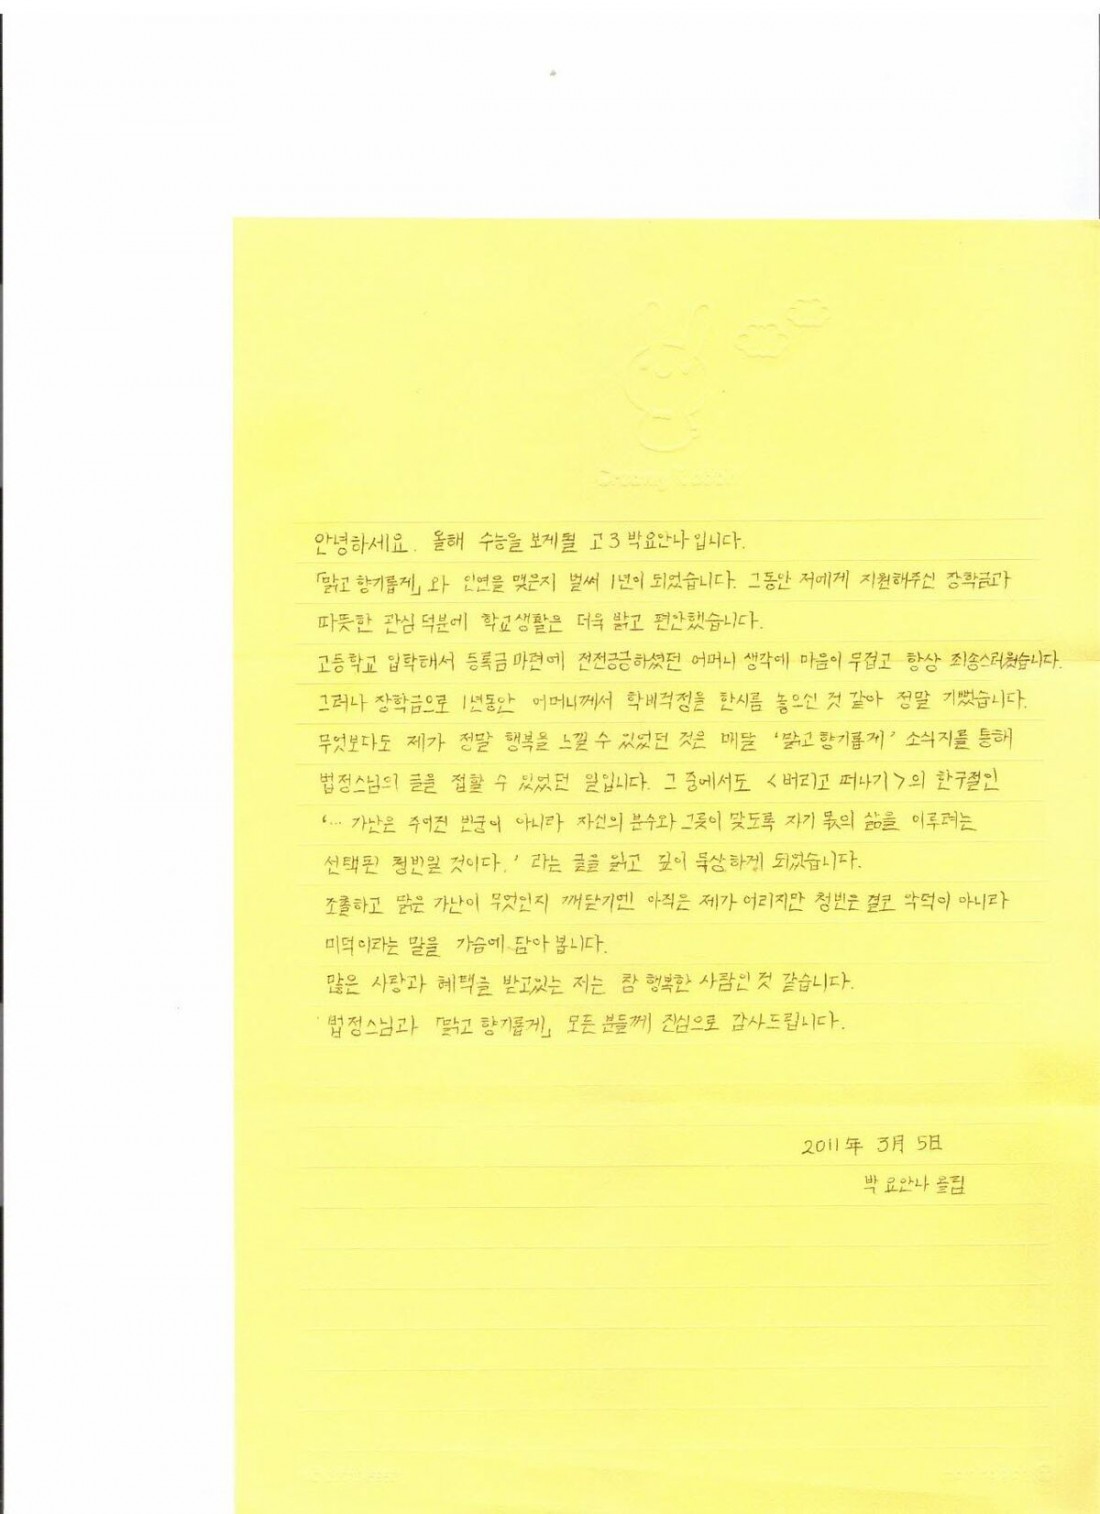 안녕하세요. 올해 수능을 보게될 고3 박요안나입니다.
「맑고 향기롭게」와 인연을 맺은지 벌써 1년이 되었습니다. 그동안 저에게 지원해주신 장학금과
따뜻한 관심 덕분에 학교생활은 더욱 밝고 편안했습니다.
고등학교 입학해서 등록금 마련에 전전긍긍하셨던 어머니 생각에 마음이 무겁고 항상 죄송스러웠습니다.
그러나 장학금으로 1년동안 어머니께서 학비걱정을 한시름 놓으신 것 같아 정말 기뻤습니다.
무엇보다도 제가 정말 행복을 느낄 수 있었던 것은 매달 '맑고 향기롭게' 소식지를 통해
법정스님의 글을 접할 수 있었던 일입니다. 그 중에서도 <버리고 떠나기>의 한구절인
'… 가난은 주어진 빈궁이 아니라 자신의 분수와 그릇이 맞도록 자기 몫의 삶을 이루려는
선택된 청빈일 것이다.' 라는 글을 읽고 깊이 묵상하게 되었습니다.
조촐하고 맑은 가난이 무엇인지 깨닫기엔 아직은 제가 어리지만 청빈은 결코 악덕이 아니라
미덕이라는 말을 가슴에 담아 봅니다.
많은 사랑과 혜택을 받고있는 저는 참 행복한 사람인 것 같습니다.
법정스님과 「맑고 향기롭게」 모든 분들께 진심으로 감사드립니다.
2011年 3月 5日
박요안나 올림